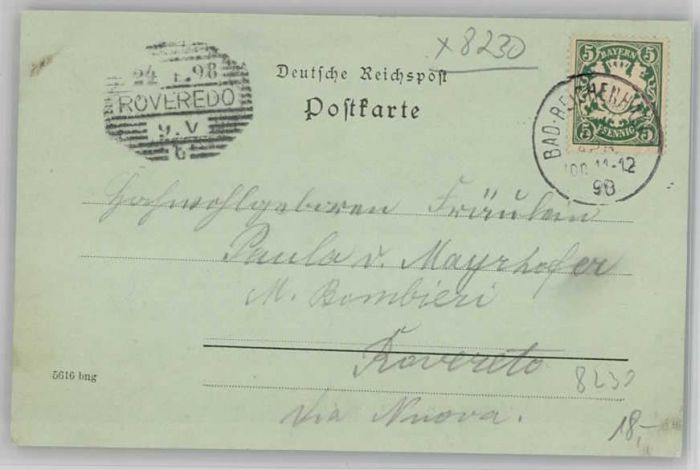 x 8230
Deutsche Reichspost
Postkarte
24 98
ROVEREDO
9.V
b
5 BAYERN 5
5 PFENNIG 5
BAD-REICHENHALL
11-12
98
Hochwohlgeboren Fräulein
Paula v. Mayrhofer
M. Bombieri
Rovereto
Via Nuova.
5616 bng
8230
18,-